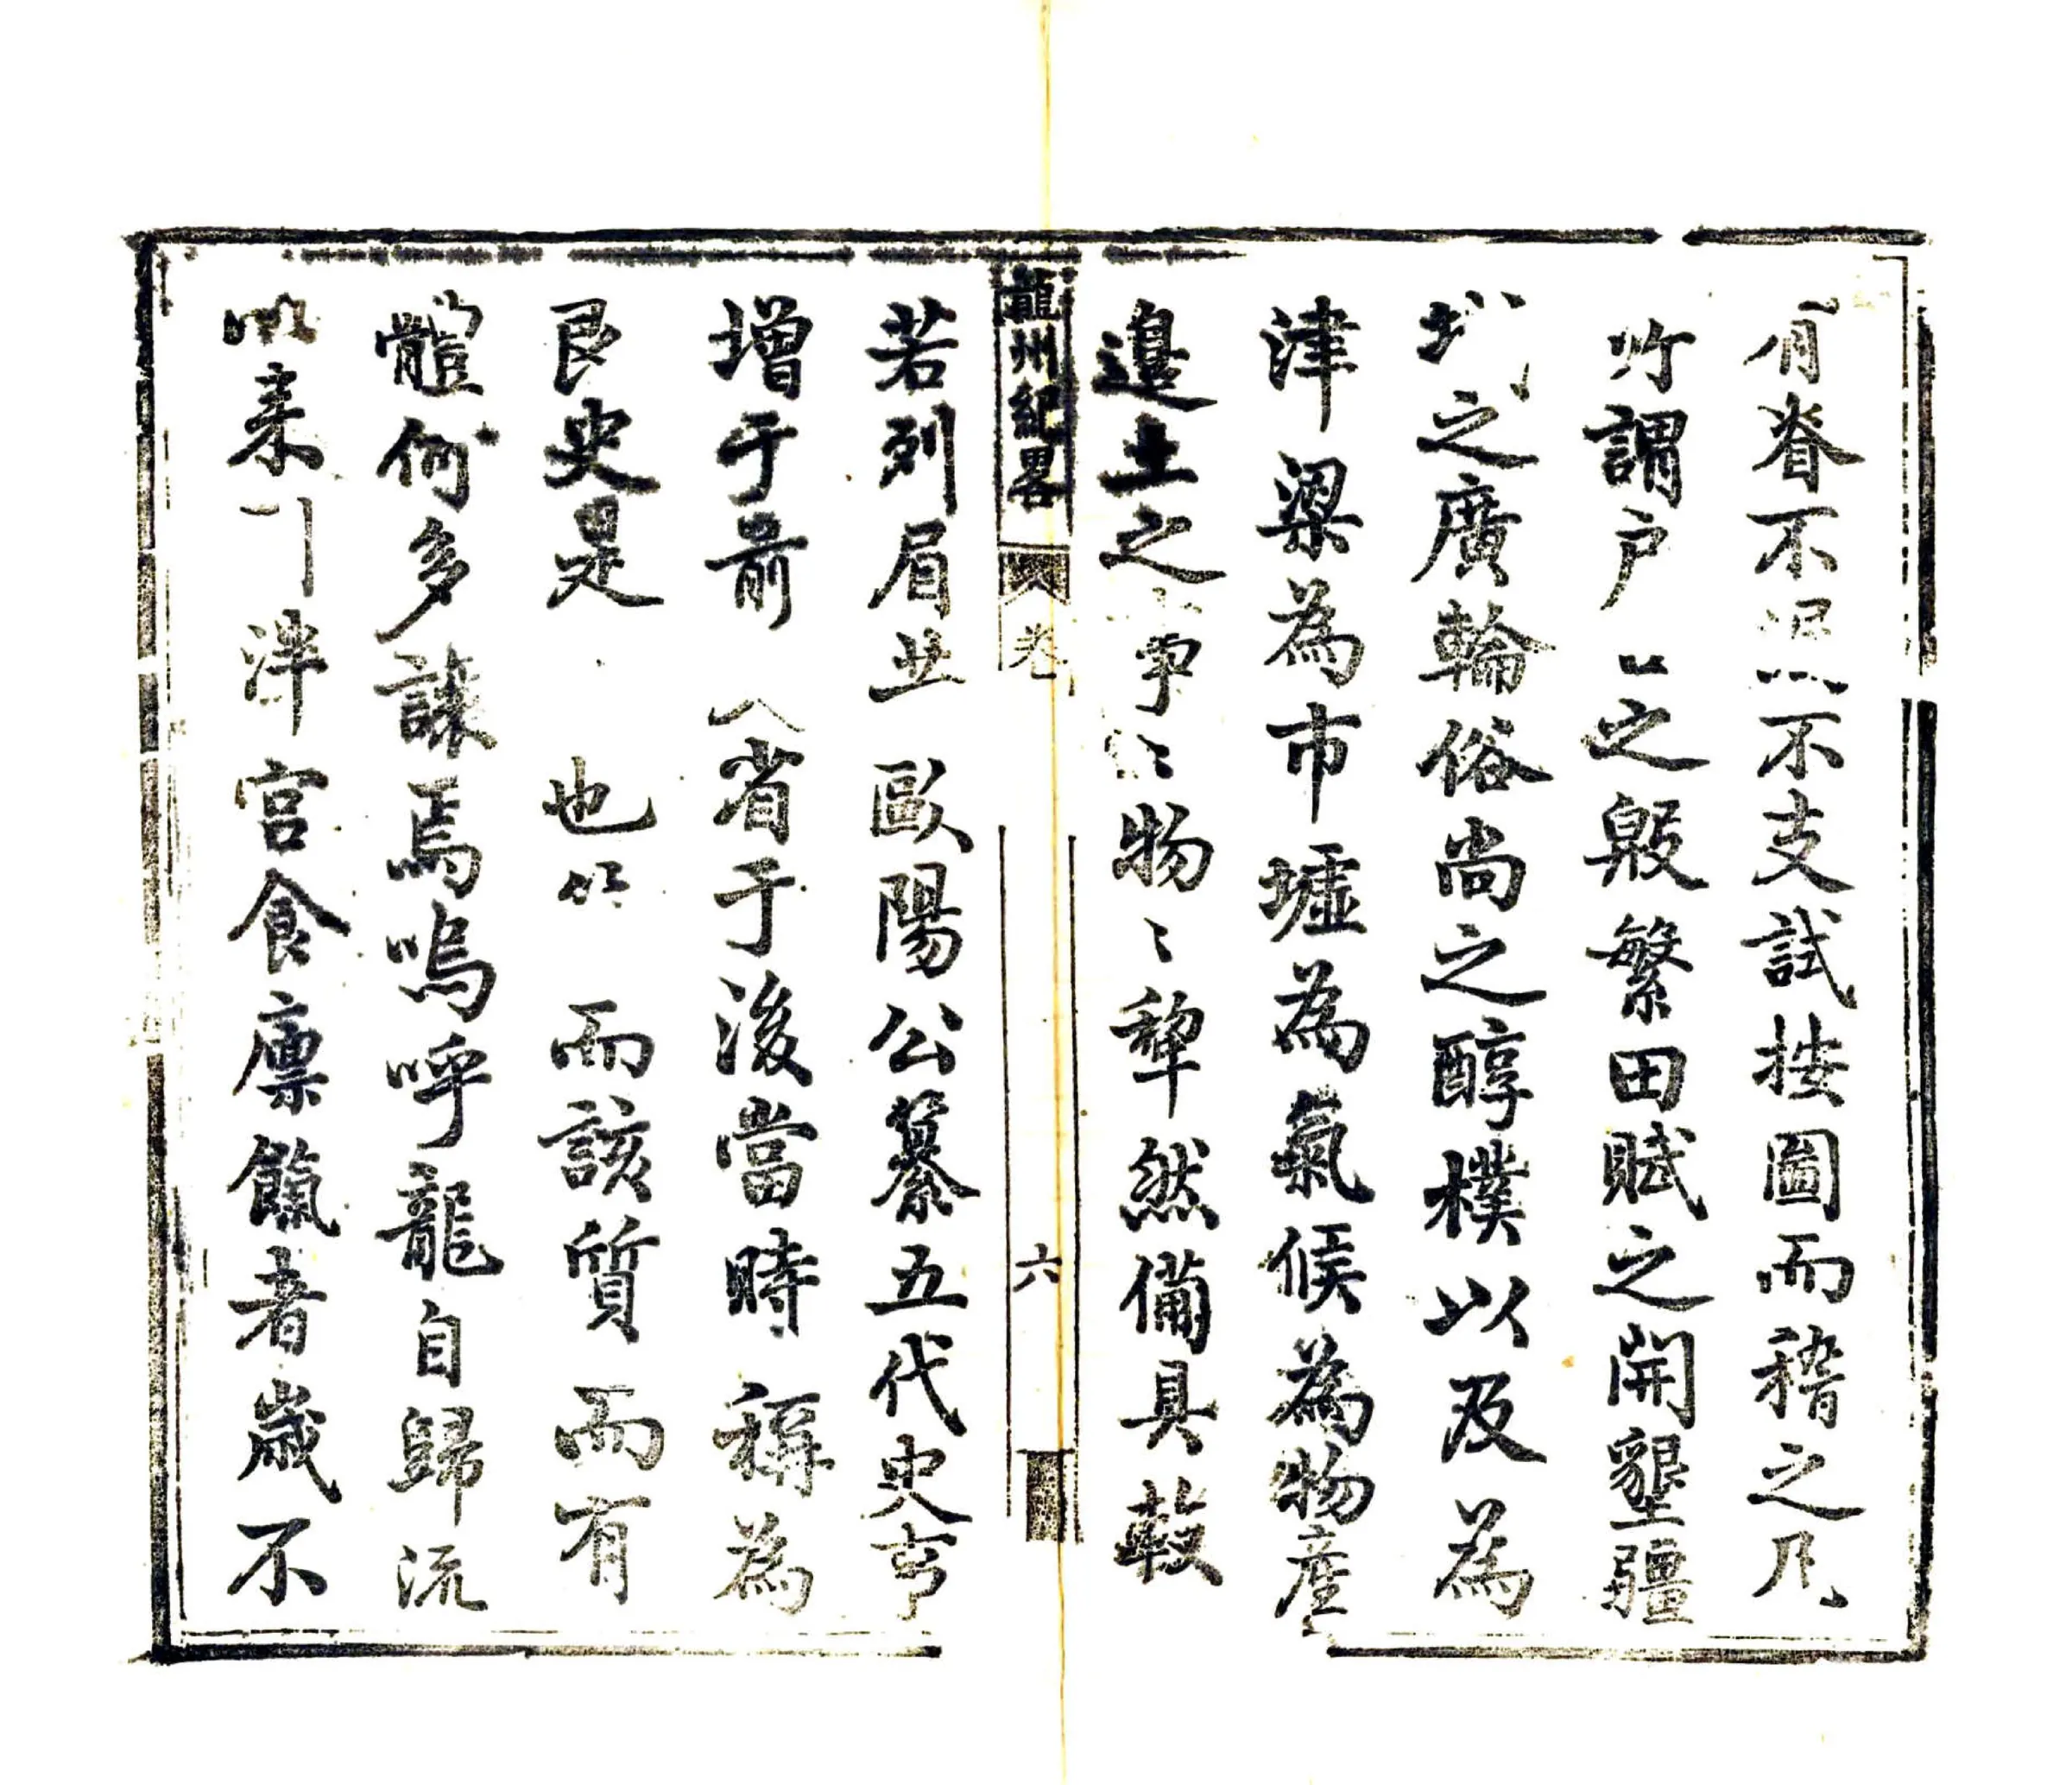 有脊不混不支試按圖而稽之凡
所謂戶口之殷繁田賦之開墾疆
域之廣輪俗尚之醇樸以及為
津梁為市墟為氣候為物產
邊土之事〻物〻犂然備具較
龍州紀畧
卷
六
若列眉並歐陽公纂五代史亏
增于前省于後當時稱為
良史是也而該質而有
體何多讓焉嗚呼龍自歸流
以来泮宫食廪餼者歲不